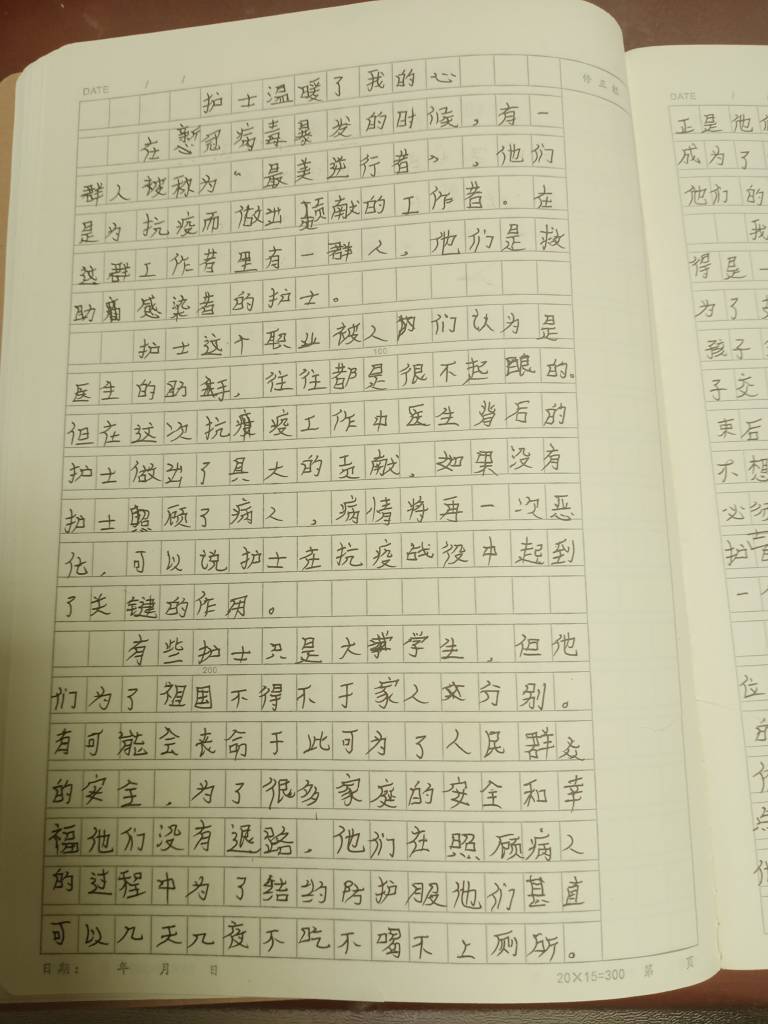 DATE / /
护士温暖了我的心
在新冠病毒暴发的时候，有一
群人被称为“最美逆行者”，他们
是为抗疫而做出贡献的工作者。在
这群工作者里有一群人，他们是救
助感染者的护士。
护士这个职业被人们认为是
100
医生的助手，往往都是很不起眼的。
但在这次抗疫工作中医生背后的
护士做出了具大的贡献，如果没有
护士照顾了病人，病情将再一次恶
化，可以说护士在抗疫战役中起到
了关键的作用。
有些护士只是大学生，但他
200
们为了祖国不得不于家人分别。
有可能会丧命于此可为了人民群众
的安全，为了很多家庭的安全和幸
福他们没有退路，他们在照顾病人
的过程中为了结约防护服他们甚直
可以几天几夜不吃不喝不上厕所。
日期： 年 月 日
20×15=300 第 页
DATE /
正是他们
成为了
他们的
我
得是一
为了
孩子
子交
束后
不想
必须
护士
一
位
的
点